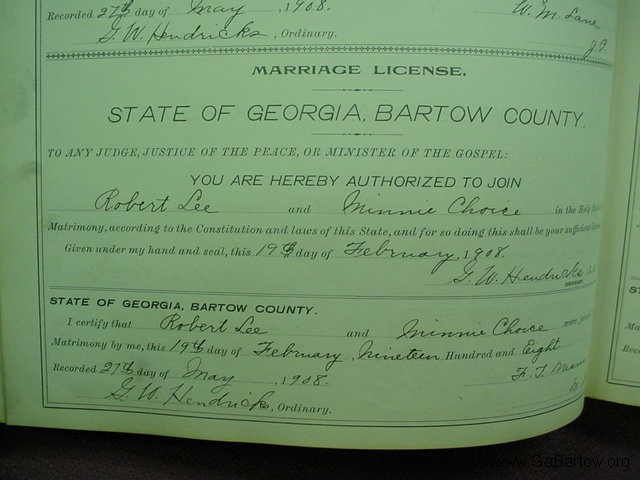 Recorded 27th day of May, 1908. W. M. Lane
G. W. Hendricks, Ordinary. J. P.
MARRIAGE LICENSE.
STATE OF GEORGIA, BARTOW COUNTY.
TO ANY JUDGE, JUSTICE OF THE PEACE, OR MINISTER OF THE GOSPEL:
YOU ARE HEREBY AUTHORIZED TO JOIN
Robert Lee and Minnie Choice in the Holy
Matrimony, according to the Constitution and laws of this State, and for so doing this shall be your sufficient
Given under my hand and seal, this 19th day of February, 1908.
G. W. Hendricks
ORDINARY.
STATE OF GEORGIA, BARTOW COUNTY.
I certify that Robert Lee and Minnie Choice were
Matrimony by me, this 19th day of February, Nineteen Hundred and Eight
Recorded 27th day of May, 1908. F. T.
G. W. Hendricks, Ordinary. M.
www.GaBartow.org